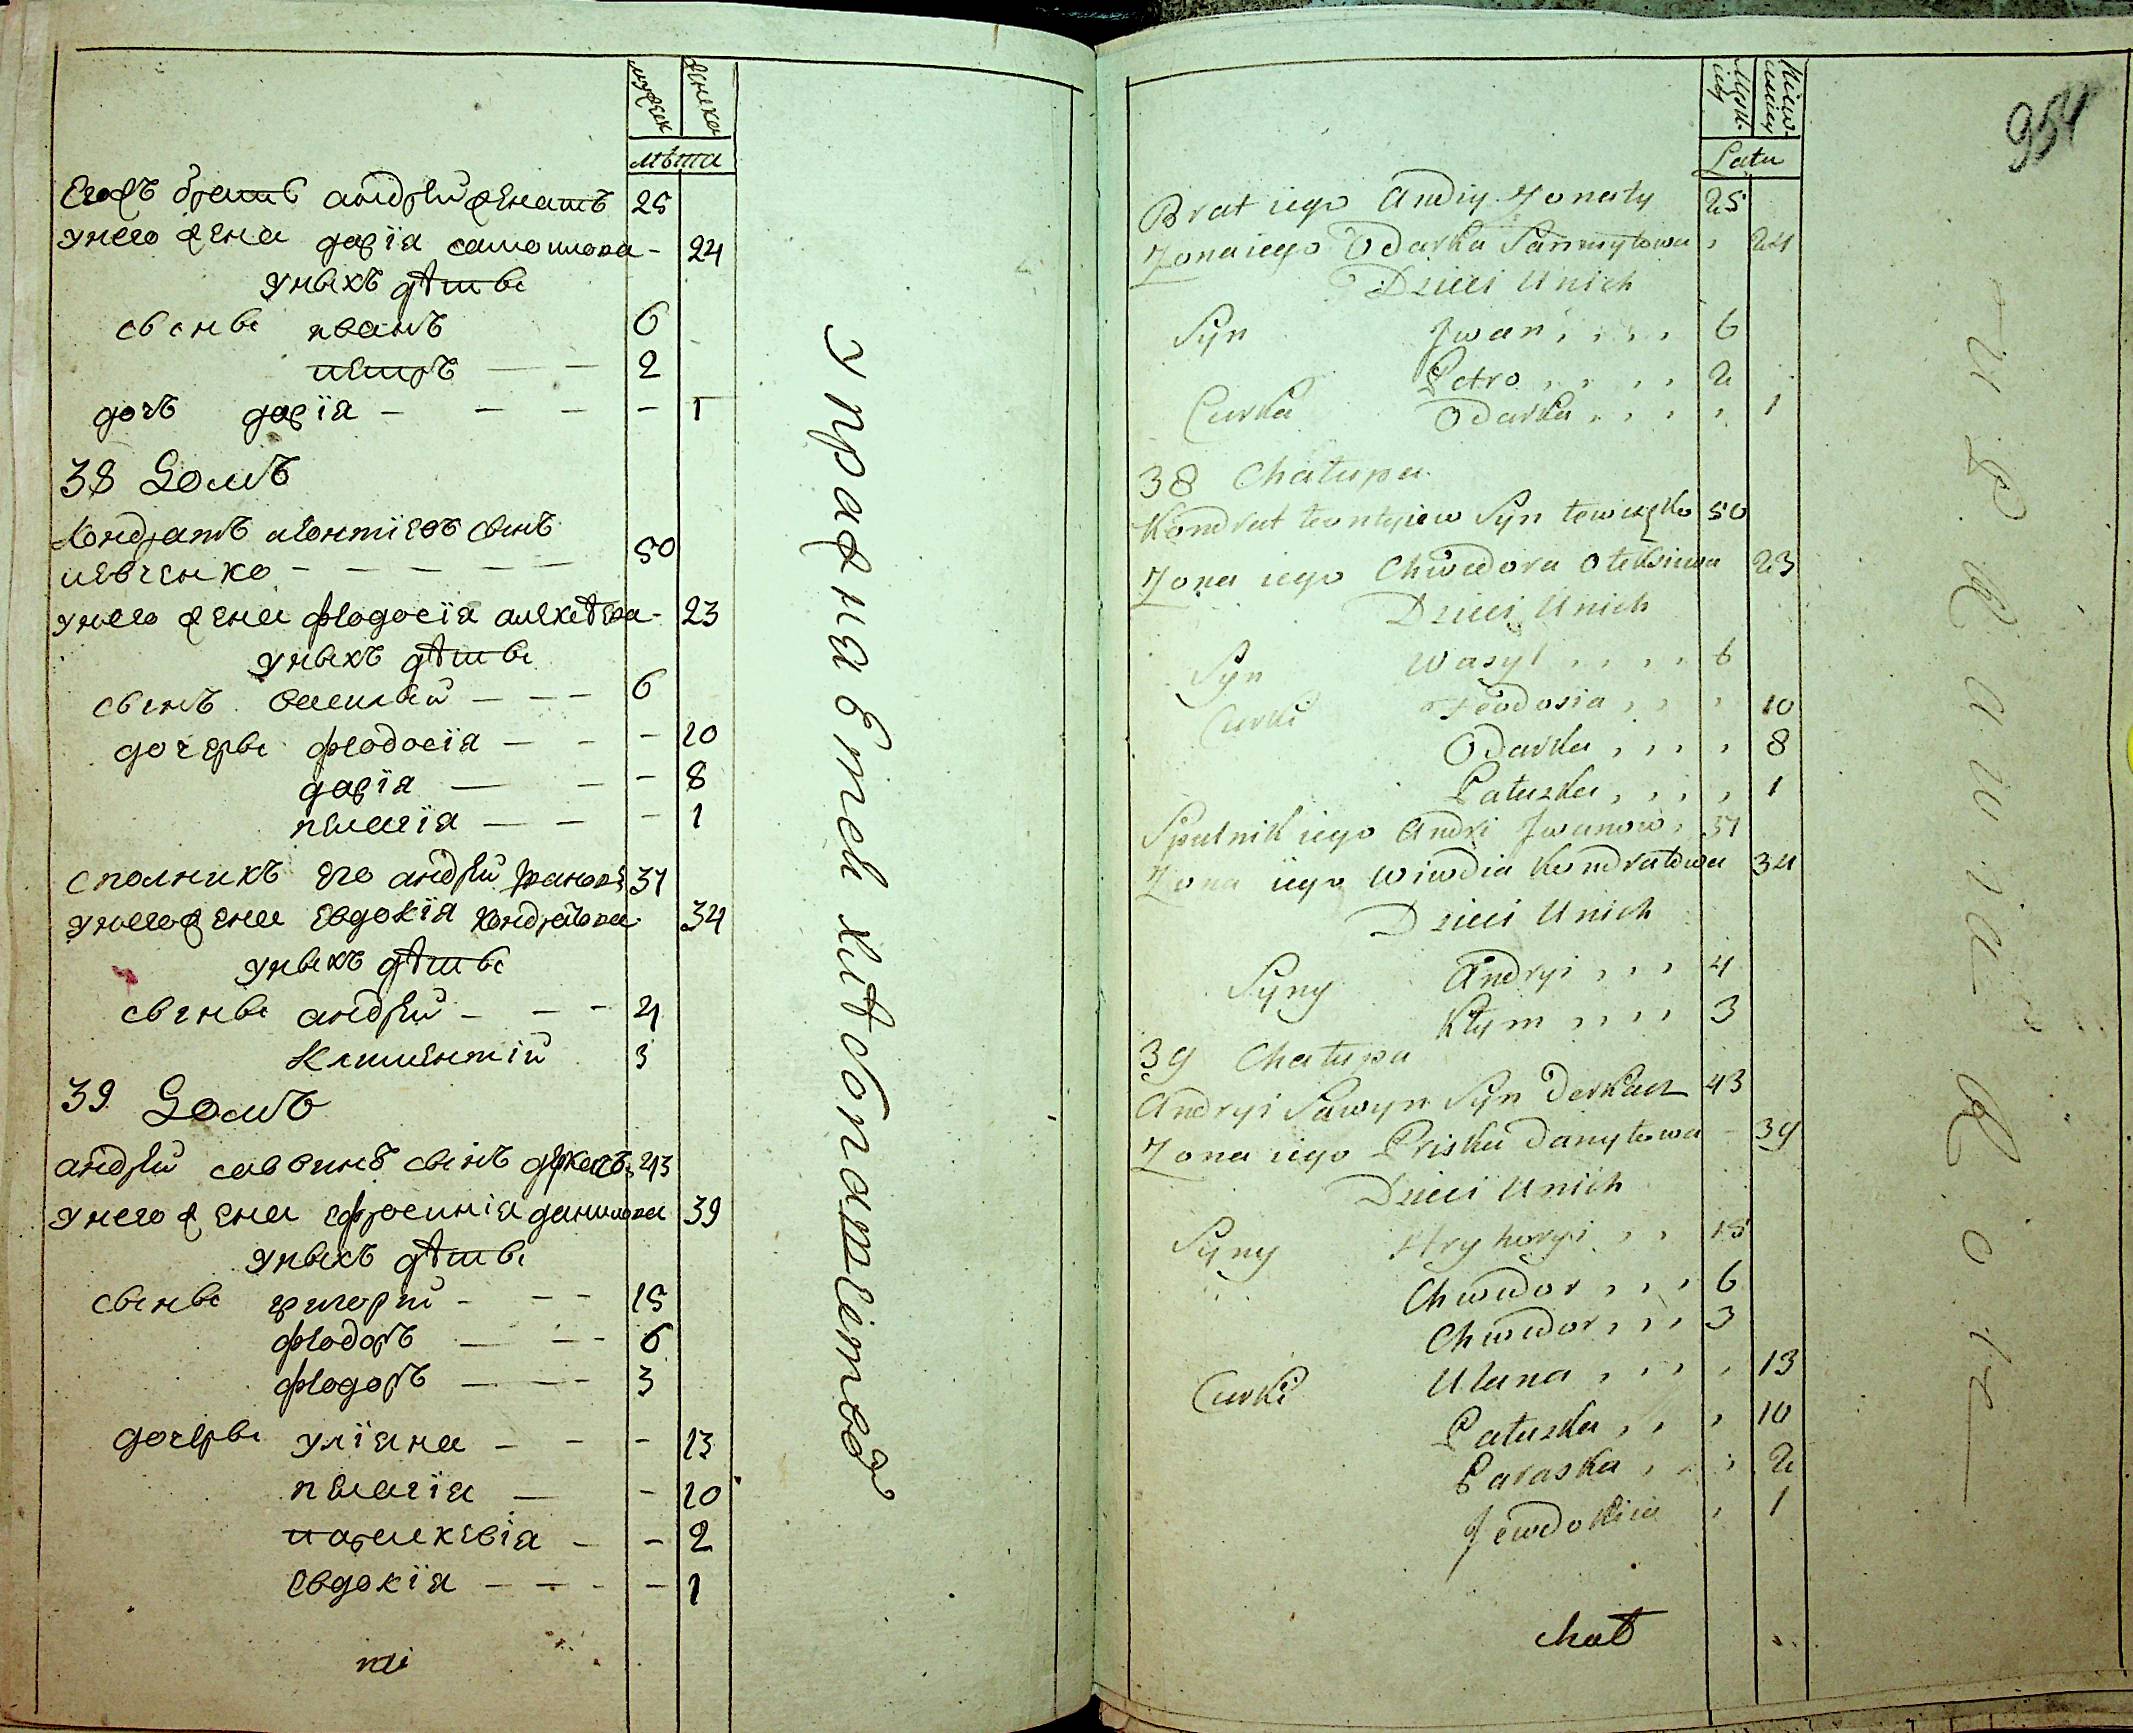 мужеск женска
лѣта
Егожъ братъ андрей женатъ 25
унего жена дарїя самоилова - 24
уныхъ дѣтъи
сыны иванъ 6
петръ — — 2
дочь дарїя — — — — 1
38 Домъ
Кондратъ леонтїевъ сынъ
левченко — — — — — 50
унего жена феодосїя алексѣева - 23
уныхъ дѣтъи
сынъ василий — — — 6
дочеры феодосїя — — — 10
дарїя — — — 8
пелагїя — — — 1
сполникъ его андрей Ивановъ 37
унего жена евдокїя кондратова 34
уныхъ дѣтъи
сыны андрей — — — 4
Климентїй 3
39 Домъ
андрей саввинъ сынъ деркачъ 43
унего жена ефросинїя данилова 39
уныхъ дѣтъи
сыны григорїй — — — 15
феодоръ — — — 6
феодоръ — — — 3
дочеры улїяна — — — 13
пелагїя — — 10
параскевїя — — 2
евдокїя — — — — 1
упражняется хлѣбопашествод
954
Latu
Brat iego Andiy Żonaty 25
Zona iego Odarka Samuyłowa , 24
Dzieci Unich
Syn Jwan , , , , 6
Petro , , , , 2
Curka Odarka , , , , 1
38 Chałupa
Kondrat Leontyiew Syn Lewczęko 50
Zona iego Chwedora Oleksiiwa 23
Dzieci Unich
Syn Wasyl , , , , 6
Curki Feodosia , , , 10
Odarka , , , , 8
Pałazka , , , , 1
Spulnik iego Andri Jwanow , 37
Zona iego Wiwdia Kondratowa 34
Dzieci Unich
Syny Andryi , , , 4
Kłym , , , , 3
39 Chałupa
Andryi Sawyn Syn Derkacz 43
Zona iego Priska Danyłowa - 39
Dzieci Unich
Syny Hryhoryi , , 15
Chwedor , , , 6
Chwedor , , , 3
Curki Ulana , , , , 13
Pałazka , , , 10
Paraska , , , 2
Jewdokiia , 1
chat